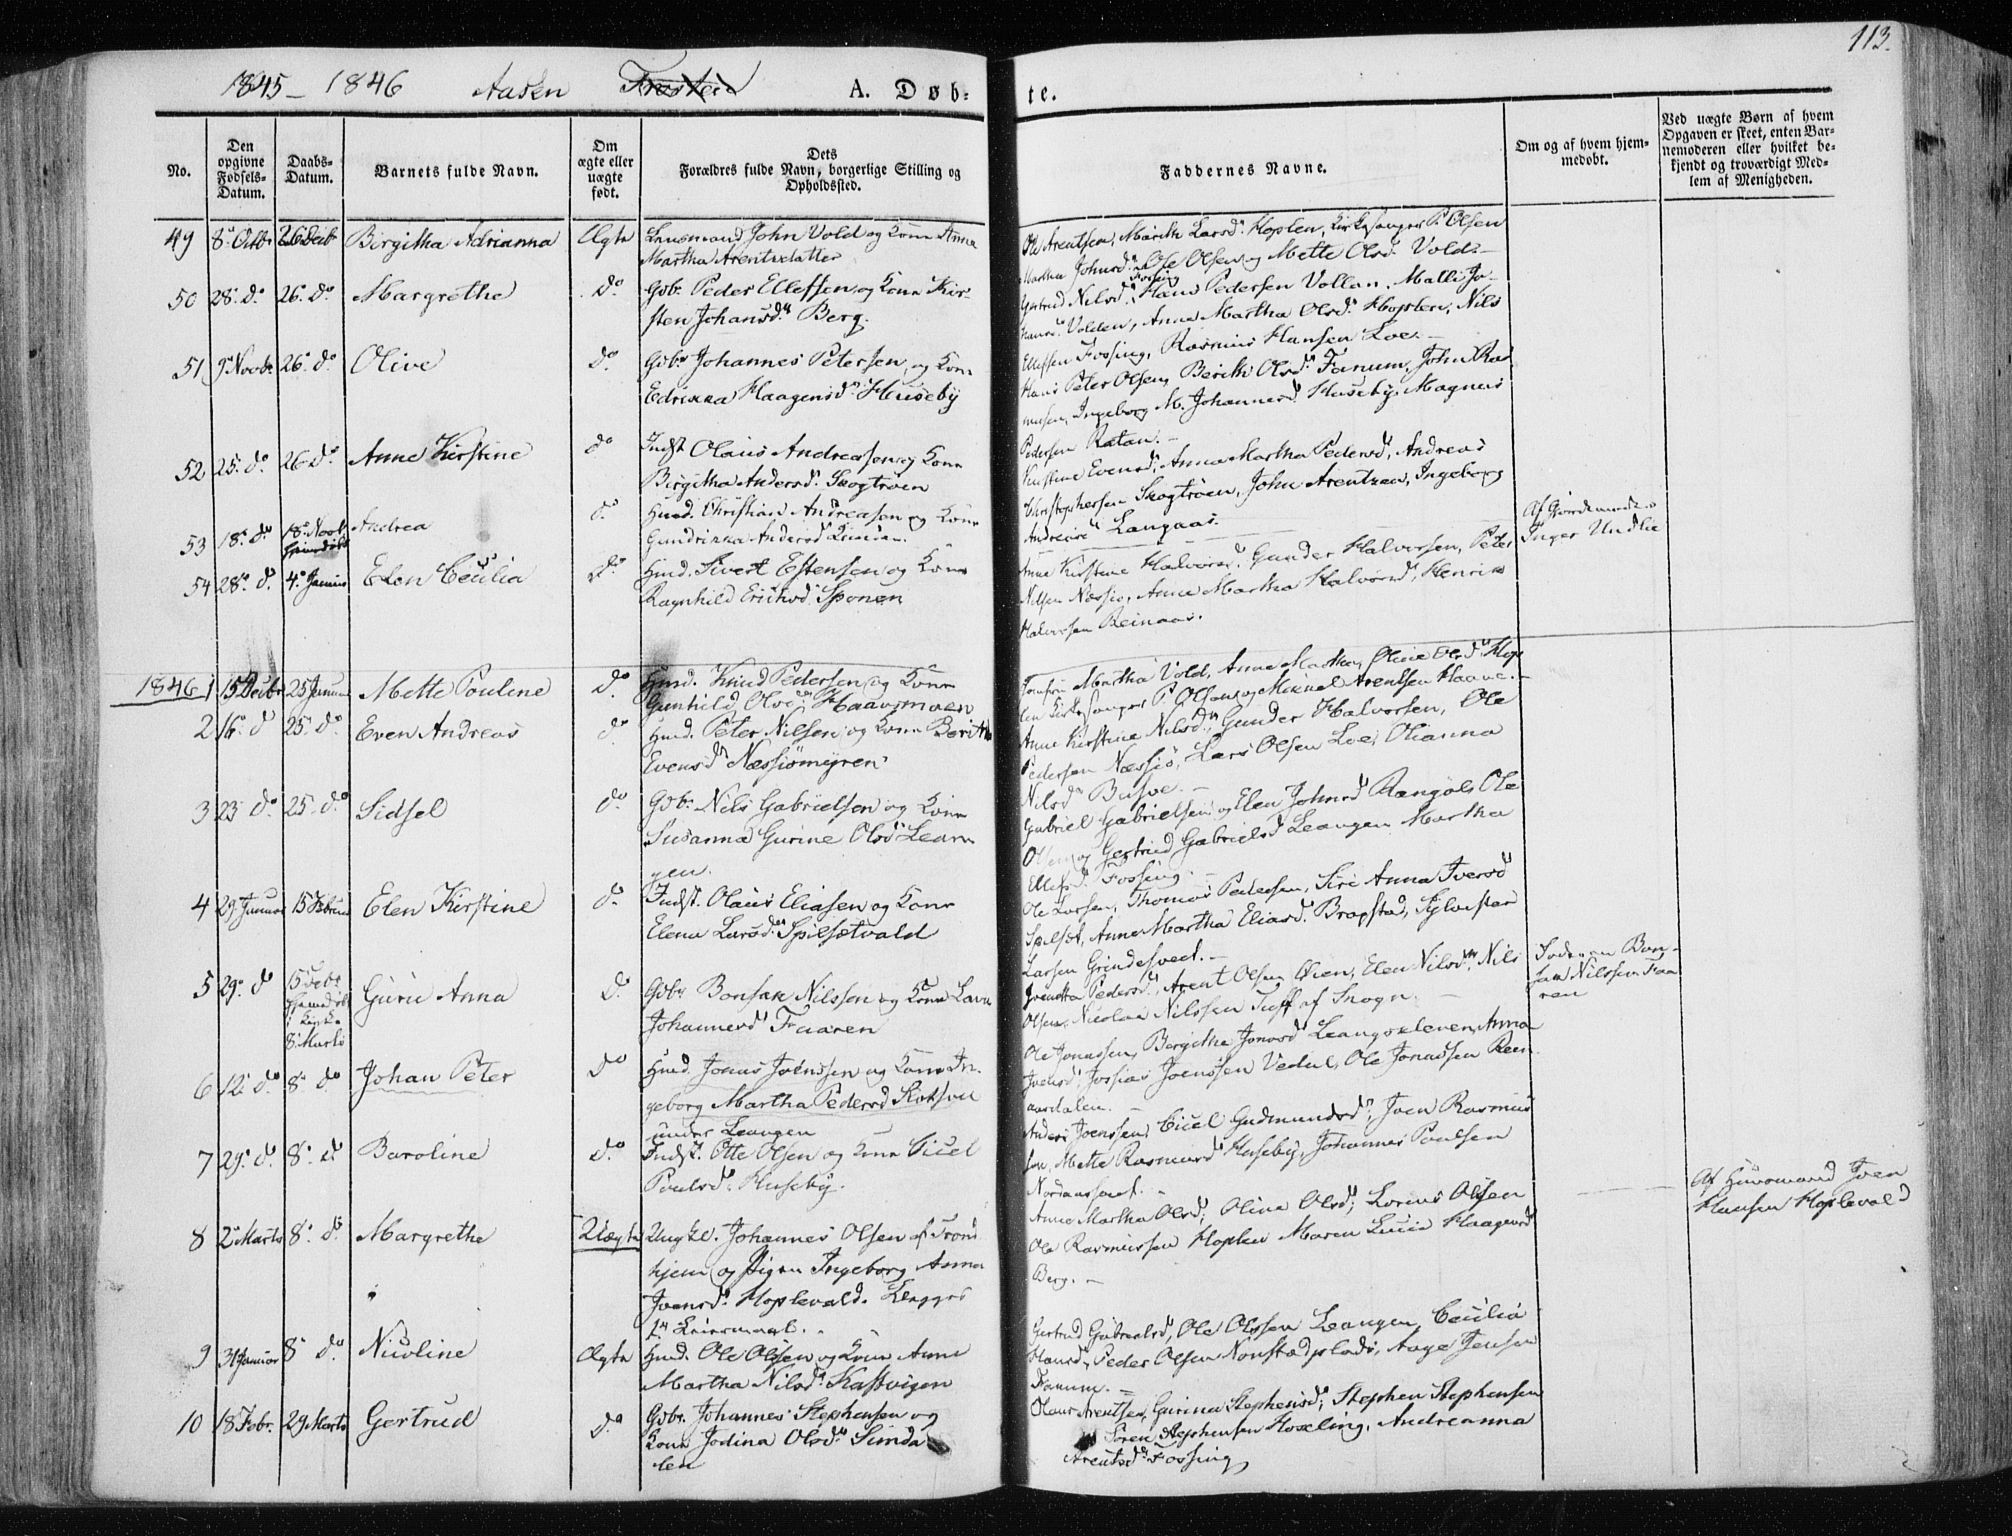 113.
1845 - 1846 Aasen Frosten A. Døb- te.
No.
Den opgivne Fødsels-Datum.
Daabs-Datum.
Barnets fulde Navn.
Om ægte eller uægte født.
Dets Forældres fulde Navn, borgerlige Stilling og Opholdssted.
Faddernes Navne.
Om og af hvem hjem-medøbt.
Ved uægte Børn af hvem Opgaven er skeet, enten Bar-nemoderen eller hvilket be-kjendt og troværdigt Med-lem af Menigheden.
49 8de Octbr 26 Decbr Birgitha Adrianna Ægte Lensmand John Vold og Kone Anna
Martha Arentsdatter
Ole Arentsen, Marith Larsd. Hoplen, Kirkesanger P. Olsen
Martha Johnsd. Ole Olsen og Mette Olsd. Vold.
50 28. do 26. do Margrethe do Gdbr. Peder Ellefsen og Kone Kir-
sten Johansd. Berg.
Gertrud Nilsd. Fossing, Hans Pedersen Vollan, Malli Jo-
hansd. Volden, Anne Martha Olsd. Hoplen, Nils
Ellefsen Fossing, Rasmus Hansen Loe.
51 9 Novbr 26. do Olive do Gdbr Johannes Petersen og Kone
Edrikka Haagensd. Huseby
Hans Peter Olsen, Berith Olsd. Fanum, John Ras
musen, Ingeborg M. Johannesd. Huseby, Magnus
Pedersen Ratan.
52 25. do 26 do Anne Kirstine do Indst Olaus Andreasen og Kone
Birgitha Andersd. Skogtrøen
Kirstine Evensd, Anna Martha Pedersd, Andreas
Christophersen Skogtrøen, John Arentzen, Ingeborg
Andreasd Langaas.
53 18. do 18. Novb Andrea do Huusd. Christian Andreasen og Kone
Gundrikka Andersd
Af Gjordemoder
Inger Undlie
54 28. do 4. Januar Elen Cecilia do Huusd. Sivert Estensen og Kone
Ragnhild Ericksd Sponen
Anne Kirstine Halvorsd. Gunder Halvorsen, Peter
Nilsen Næssiø, Anne Martha Halvorsd, Henrik
Halvorsen Reinaas.
1846 1 15 Decbr 25 Januar Mette Pouline do Huusd. Knud Pedersen og Kone
Gunhild Olsd. Haavsmoen
Jomfru Martha Vold, Anne Martha, Oline Olsd. Hop
len Kirkesanger P. Olsen og Mikael Arentsen Haave.
2 16. do 25. do Even Andreas do Huusd. Peter Nilsen og Kone Berith
Evensd Næssiømyren
Anne Kirstine Nilsd, Gunder Halvorsen, Ole
Pedersen Næssiø, Lars Olsen Loe, Olianna
Nilsd Busve.
3 23 do 25. do Sidsel do Gdbr. Nils Gabrielsen og Kone
Susanna Gurine Olsd Lean
gen.
Gabriel Gabrielsen og Elen Johnsd Rangøl, Ole
Olsen og Gertrud Gabrielsd Leangen, Martha
Ellefsd. Fossing.
4 29 Januar 15 Februar Elen Kirstine do Indst. Olaus Eliasen og Kone
Elena Larsd. Spilsætvald
Ole Larsen, Thomas Pedersen, Siri Anna Iversd
Spilset, Anne Martha Eliasd. Brapstad, Sylvester
Larsen Grindesvedt.
5 29. do 15 Febr Guru Anna do Gdbr Bonsak Nilssen og Kone Lava
i Kirke
8 Marts
Johannesd Faaren
Pedersd, Arent Olsen Øien, Elen Nilsd, Nils
Olsen, Nicolai Nilssen Tuff af Snogn.
Faderen Bon-
sak Nilssen Faa
ren
6 12. do 8. do Johan Peter do Huusd. Jonas Joenssen og Kone In-
geborg Martha Pedersd
under Leangen
Ole Jonassen, Bergitha Jonasd Leangskleven, Anna
Joensd, Jossias Joenssen Vedul, Ole Jonassen Reen
aasdalen.
7 29. do 8. do Baroline do Indst. Otte Olsen og Kone Sicel
Poulsd. Huseby.
Anders Joenssen, Cicel Gudmundsd, Joen Rasmus
sen, Mette Rasmusd Huseby, Johannes Poulsen
8 2 Marts 8. do Margrethe Uægte Ungkl. Johannes Olsen af Trond
hjem og Pigen Ingeborg Anna
Joensd. Hoplevald. Begges
1ste Leiermaal.
Anne Martha Olsd; Oline Olsd; Lorens Olsen
Ole Rasmussen Hoplen Maren Lucia Haagensd
Berg.
Af Huusmand Joen
Hansen Hoplevald
9 31 Januar 8 do Nicoline Ægte Huusd. Ole Olsen og Kone Anne
Martha Nilsd. Hattvigen
Gertrud Gabrielsd, Ole Olssen Leangen, Cecilia
Hansd, Peder Olsen Nonstadplads, Aage Jensen
Fanum.
10 18 Febr. 29 Marts Gertrud do Gdbr. Johannes Stephensen og
Kone Jodina Olsd Simda
len
Olaus Arentsen, Gurina Stephensd; Stephen Stephensen
Sören Stephensen Hoseling, Andreanna
Arentsd Fossing